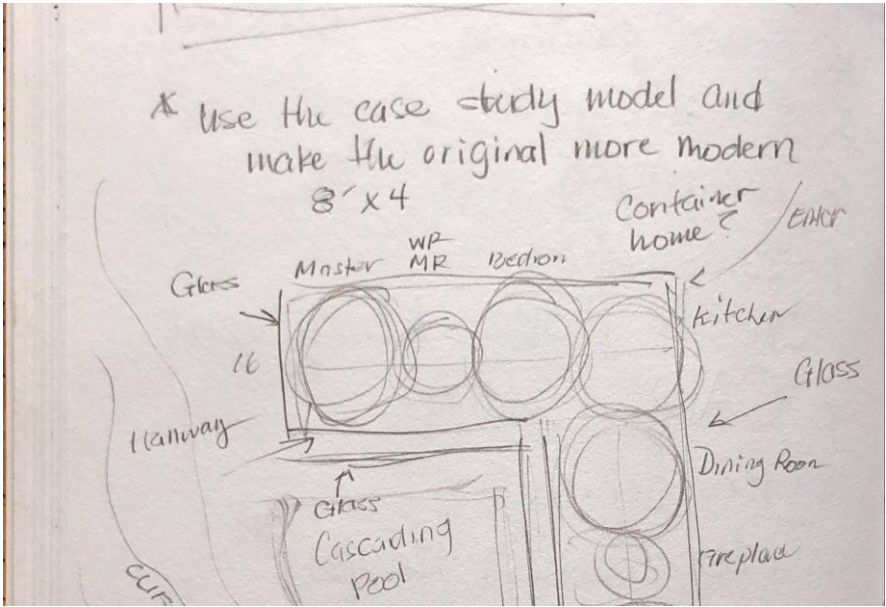 * use the case study model and
make the original more modern
8' x 4
Container
home?
Enter
WR
MR
Master
Bedron
Glass
Kitchen
16
Glass
Hallway
Dining Room
Glass
Cascading
Pool
Fireplace